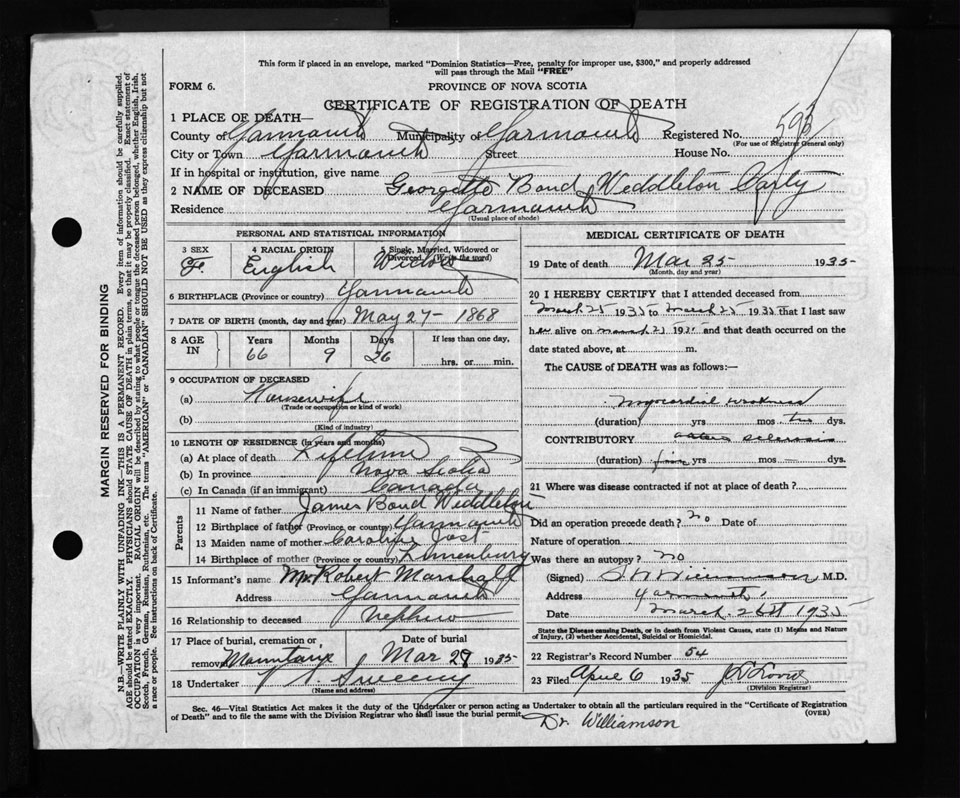 This form if placed in an envelope, marked "Dominion Statistics—Free, penalty for improper use, $300," and properly addressed
will pass through the Mail "FREE"
FORM 6.
PROVINCE OF NOVA SCOTIA
CERTIFICATE OF REGISTRATION OF DEATH
1 PLACE OF DEATH—
County of Yarmouth Municipality of Yarmouth Registered No. 593
(For use of Registrar General only)
City or Town Yarmouth Street House No.
If in hospital or institution, give name
2 NAME OF DECEASED Georgette Bond Weddleton Carty
Residence Yarmouth
(Usual place of abode)
PERSONAL AND STATISTICAL INFORMATION
3 SEX 4 RACIAL ORIGIN 5 Single, Married, Widowed or
Divorced (Write the word)
Fe. English Widow
6 BIRTHPLACE (Province or country) Yarmouth
7 DATE OF BIRTH (month, day and year) May 27 - 1868
8 AGE IN Years Months Days If less than one day,
66 9 26 hrs. or min.
9 OCCUPATION OF DECEASED
(a) Housewife
(Trade or occupation or kind of work)
(b)
(Kind of industry)
10 LENGTH OF RESIDENCE (in years and months)
(a) At place of death Lifetime
(b) In province Nova Scotia
(c) In Canada (if an immigrant) Canada
Parents
11 Name of father James Bond Weddleton
12 Birthplace of father (Province or country) Yarmouth
13 Maiden name of mother Carolyn Jost
14 Birthplace of mother (Province or country) Lunenburg
15 Informant's name Mr Robert Marshall
Address Yarmouth
16 Relationship to deceased Nephew
17 Place of burial, cremation or removal Date of burial
Mountain Mar 28 1935
18 Undertaker V S Sweeny
(Name and address)
MEDICAL CERTIFICATE OF DEATH
19 Date of death Mar 25 1935
(Month, day and year)
20 I HEREBY CERTIFY that I attended deceased from
March 25 1935 to March 25 1935 that I last saw
her alive on March 25 1935 and that death occurred on the
date stated above, at m.
The CAUSE of DEATH was as follows:—
Myocardial weakness
(duration) yrs mos dys.
CONTRIBUTORY arterio sclerosis
(duration) five yrs mos dys.
21 Where was disease contracted if not at place of death?
Did an operation precede death? no Date of
Nature of operation
Was there an autopsy? no
(Signed) Williamson M.D.
Address Yarmouth
Date March 26st 1935
State the Disease causing Death, or in death from Violent Causes, state (1) Means and Nature
of Injury, (2) whether Accidental, Suicidal or Homicidal.
22 Registrar's Record Number 54
23 Filed April 6 1935
(Division Registrar)
Sec. 46—Vital Statistics Act makes it the duty of the Undertaker or person acting as Undertaker to obtain all the particulars required in the "Certificate of Registration
of Death" and to file the same with the Division Registrar who shall issue the burial permit.
(OVER)
Dr. Williamson
MARGIN RESERVED FOR BINDING
N.B.—WRITE PLAINLY WITH UNFADING INK—THIS IS A PERMANENT RECORD. Every item of information should be carefully supplied.
AGE should be stated EXACTLY. PHYSICIANS should STATE CAUSE OF DEATH in plain terms, so that it may be properly classified. Exact statement of
OCCUPATION is very important. RACIAL ORIGIN will be described by stating to what people or tongue the deceased person belonged, whether English, Irish,
Scotch, French, German, Russian, Ruthenian, etc. The terms "AMERICAN" or "CANADIAN" SHOULD NOT BE USED as they express citizenship but not
a race or people. See instructions on back of Certificate.